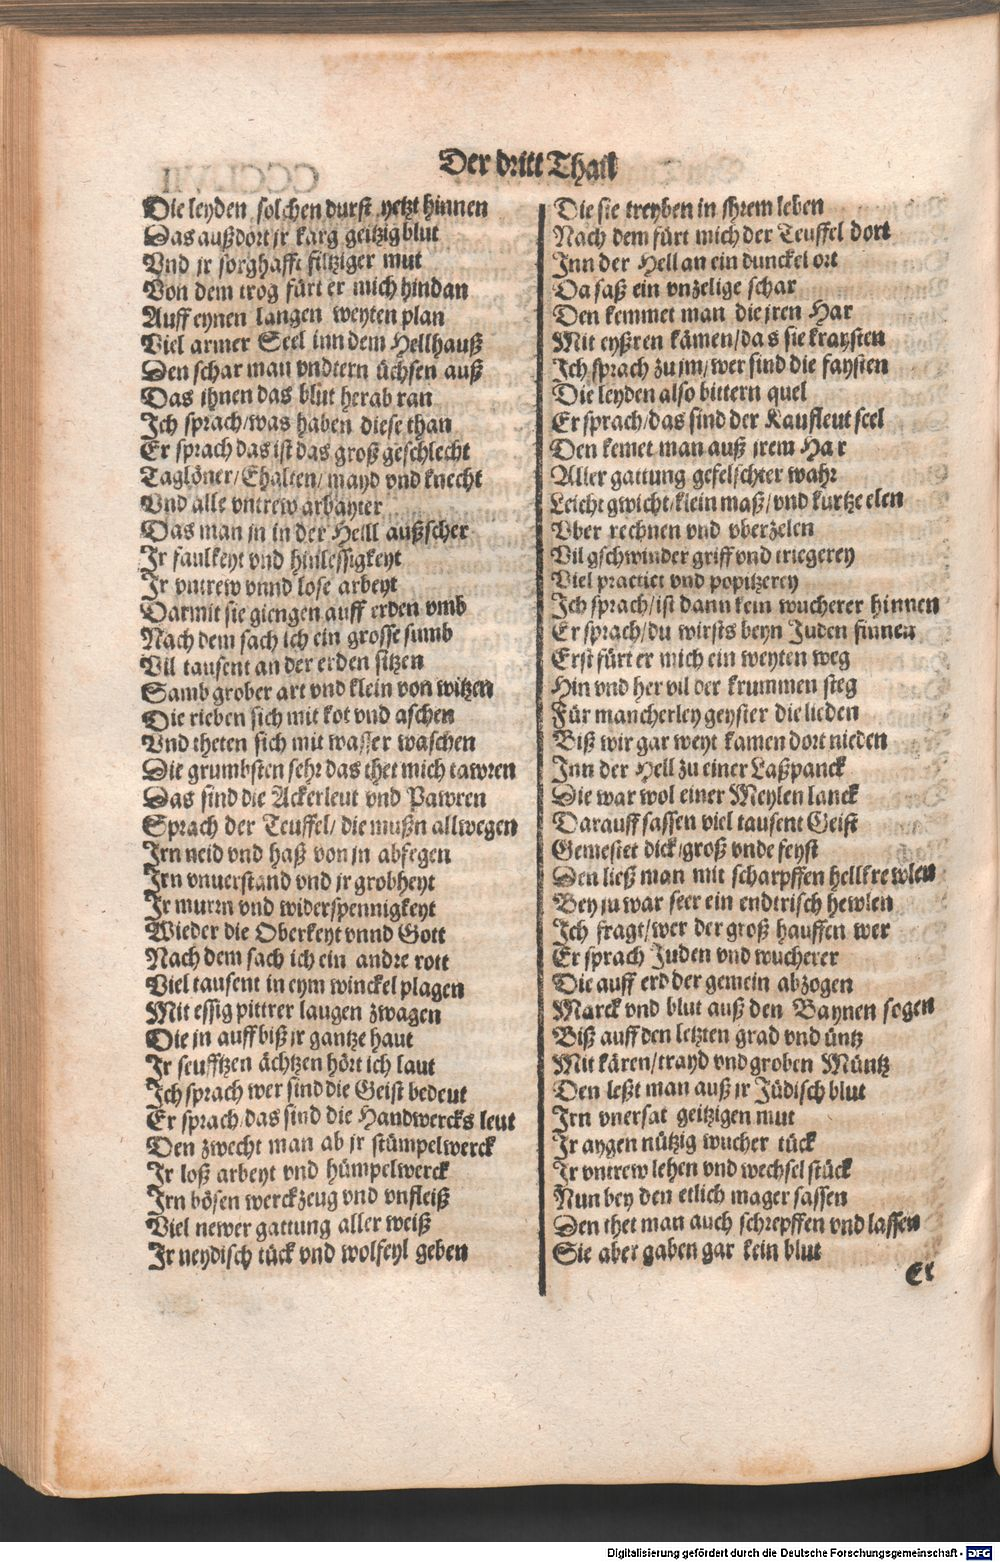 Der dritt Thail
Die leyden solchen durst yetzt hinnen
Das außdort jr karg geitzig blut
Vnd jr sorghafft filtziger mut
Von dem trog fürt er mich hindan
Auff eynen langen weyten plan
Viel armer Seel inn dem Hellhauß
Den schar man vndtern üchsen auß
Das ihnen das blut herab ran
Ich sprach/was haben diese than
Er sprach das ist das groß geschlecht
Taglöner/Ehalten/mayd vnd knecht
Vnd alle vntrew arbayter
Das man jn in der Helll außscher
Jr faulkeyt vnd hinlessigkeyt
Jr vntrew vnnd lose arbeyt
Darmit sie giengen auff erden vmb
Nach dem sach ich ein grosse sumb
Vil tausent an der erden sitzen
Samb grober art vnd klein von witzen
Die rieben sich mit kot vnd aschen
Vnd theten sich mit wasser waschen
Die grumbsten sehr das thet mich tawren
Das sind die Ackerleut vnd Pawren
Sprach der Teuffel/die mußn allwegen
Irn neid vnd haß von jn abfegen
Irn vnuerstand vnd jr grobheyt
Ir murm vnd widerspennigkeyt
Wieder die Oberkeyt vnnd Gott
Nach dem sach ich ein andre rott
Viel tausent in eym winckel plagen
Mit essig pittrer laugen zwagen
Die jn auff biß jr gantze haut
Jr seufftzen ächtzen hört ich laut
Ich sprach wer sind die Geist bedeut
Er sprach/das sind die Handwercks leut
Den zwecht man ab jr stümpelwerck
Ir loß arbeyt vnd hümpelwerck
Irn bösen werckzeug vnd vnfleiß
Viel newer gattung aller weiß
Ir neydisch tück vnd wolfeyl geben
Die sie treyben in jhrem leben
Nach dem fürt mich der Teuffel dort
Inn der Hell an ein dunckel ort
Da saß ein vnzelige schar
Den kemmet man die jren Har
Mit eyßren kämen/das sie kraysten
Ich sprach zu jm/wer sind die faysten
Die leyden also bittern quel
Er sprach/das sind der Kaufleut seel
Den kemet man auß jrem Har
Aller gattung gefelschter wahr
Leicht gwicht/klein maß/vnd kurtze elen
Vber rechnen vnd vberzelen
Vil gschwinder griff vnd triegerey
Viel practict vnd popitzerey
Ich sprach/ist dann kein wucherer hinnen
Er sprach/du wirsts beyn Juden finnen
Erst fürt er mich ein weyten weg
Hin vnd her vil der krummen steg
Für mancherley geyster die lieden
Biß wir gar weyt kamen dort nieden
Inn der Hell zu einer Laßpanck
Die war wol einer Meylen lanck
Darauff sassen viel tausent Geist
Gemestet dick/groß vnde feyst
Den ließ man mit scharpffen hellkrewlen
Bey ju war seer ein endtrisch hewlen
Ich fragt/wer der groß hauffen wer
Er sprach Juden vnd wucherer
Die auff erd der gemein abzogen
Marck vnd blut auß den Baynen sogen
Biß auff den letzten grad vnd üntz
Mit kären/trayd vnd groben Müntz
Den leßt man auß jr Jüdisch blut
Irn vnersat geitzigen mut
Ir aygen nützig wucher tück
Ir vntrew lehen vnd wechsel stück
Nun bey den etlich mager sassen
Den thet man auch schrepffen vnd lassen
Sie aber gaben gar kein blut
Er
Digitalisierung gefördert durch die Deutsche Forschungsgemeinschaft - DFG